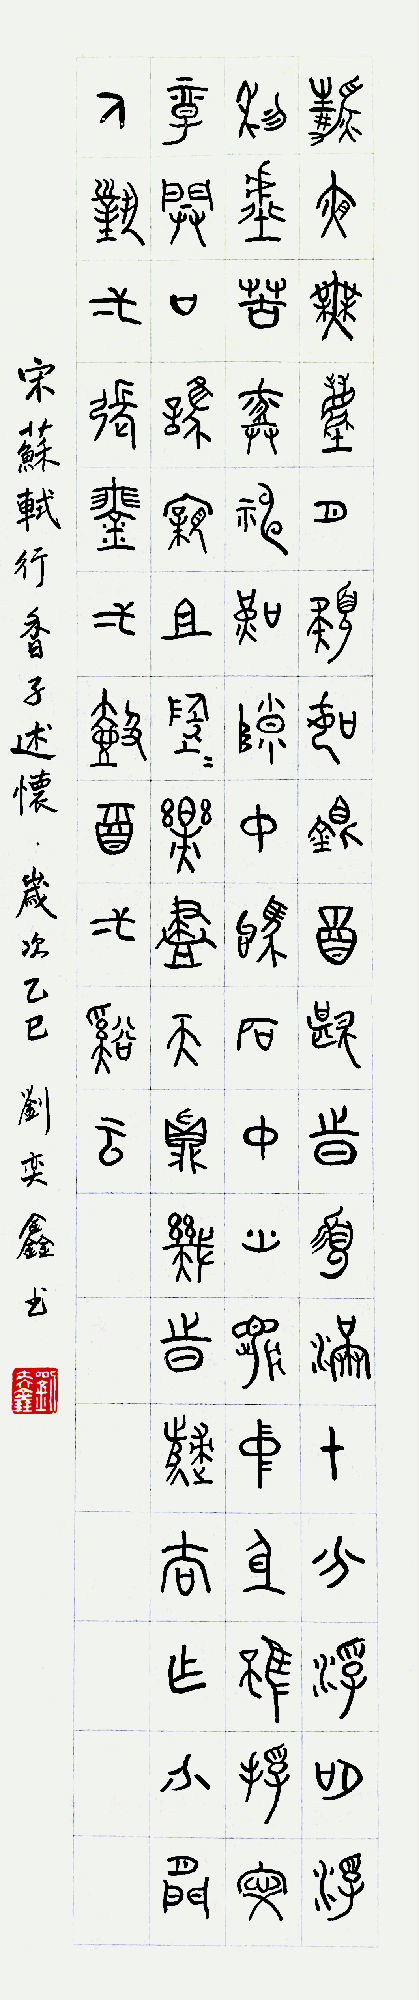 清夜無塵月色如銀酒斟時須滿十分浮名浮
利虛苦勞神嘆隙中駒石中火夢中身雖抱文
章開口誰親且陶=樂盡天真幾時歸去作个閒
人對弌張琴弌壺酒弌溪云
宋蘇軾行香子述懷·歲次乙巳 劉奕鑫书
劉奕鑫